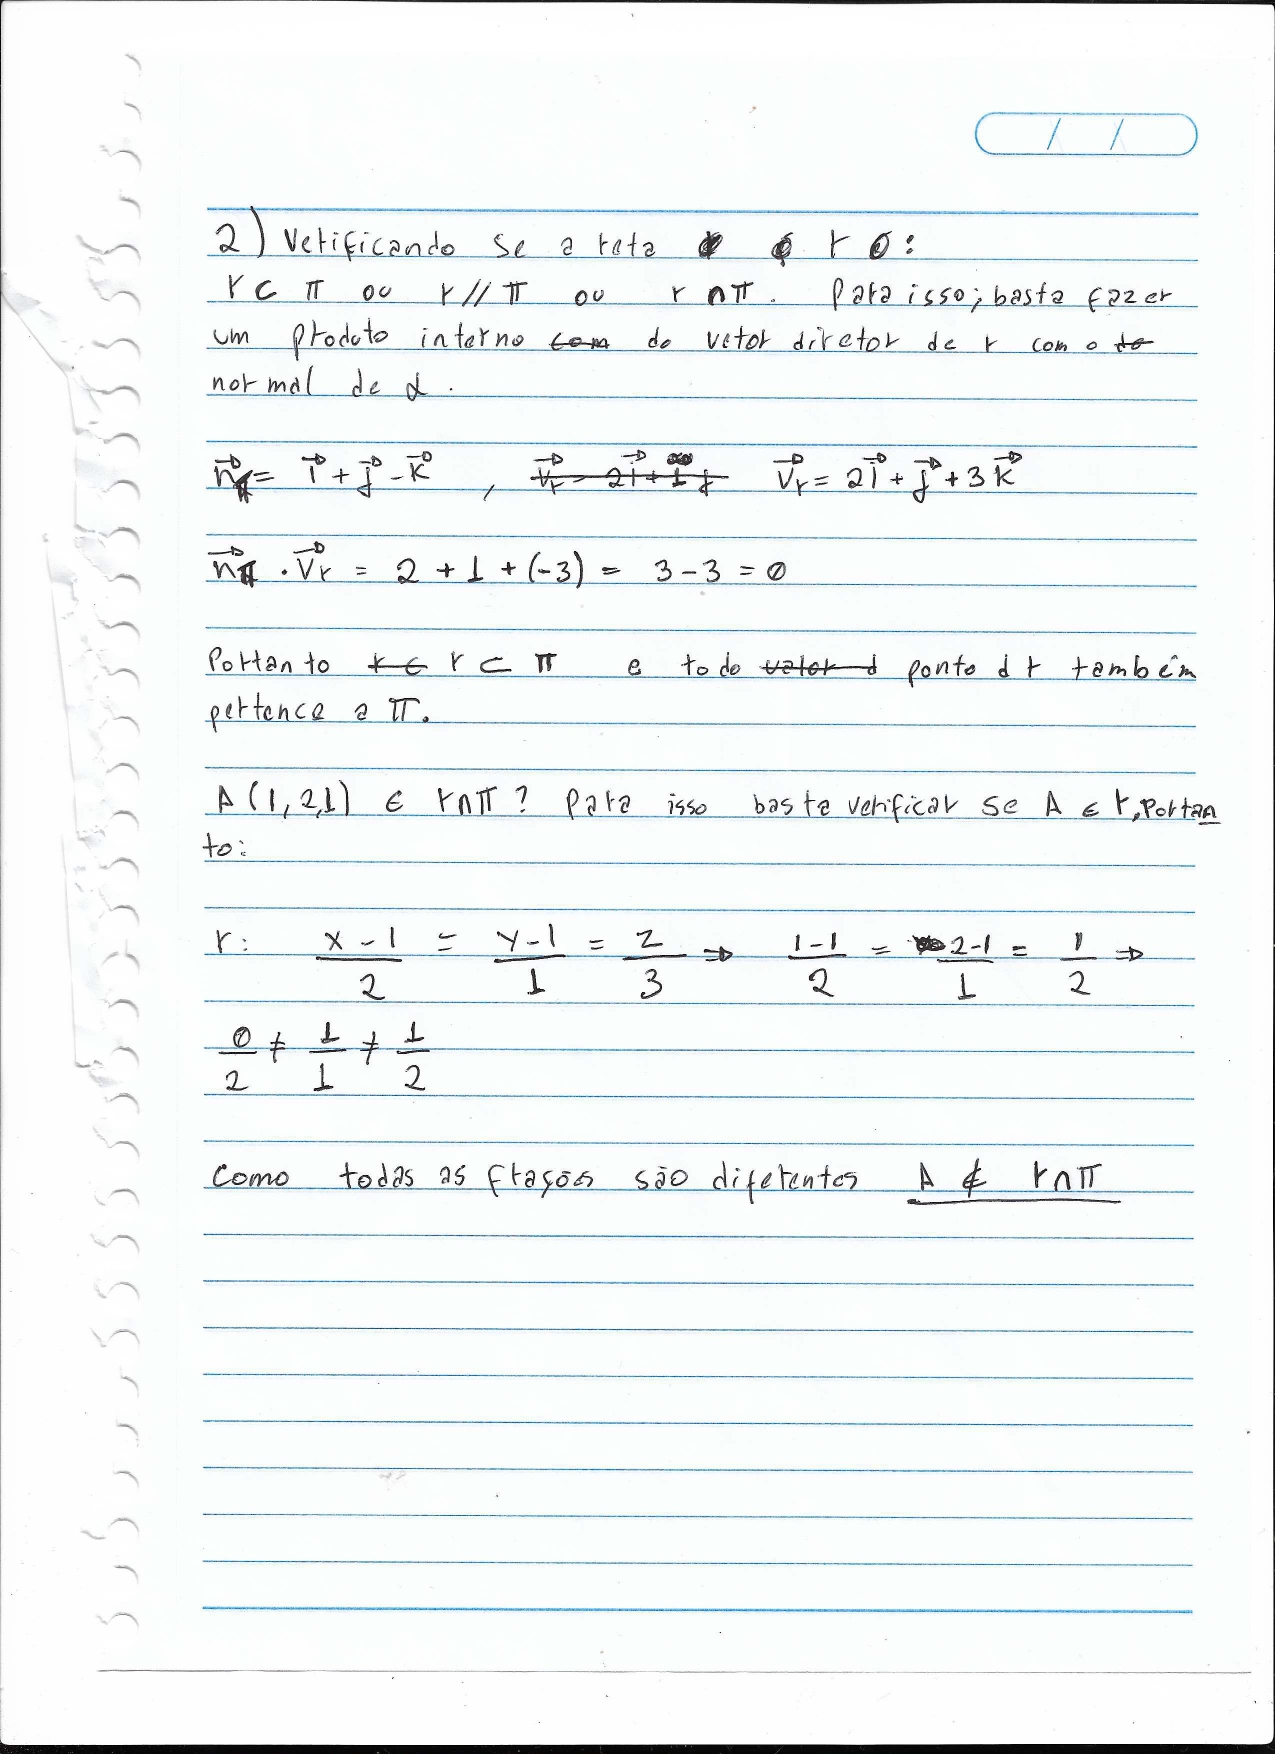 2) Verificando se a reta r é:
r ⊂ π ou r // π ou r ∩ π. Para isso; basta fazer
um produto interno com do vetor diretor de r com o do
normal de α.
n⃗π = i⃗ + j⃗ - k⃗ , v⃗r = 2i⃗ + 1 j v⃗r = 2i⃗ + j⃗ + 3k⃗
n⃗π . v⃗r = 2 + 1 + (-3) = 3 - 3 = 0
Portanto r ⊂ r ⊂ π e todo valor d ponto d r também
pertence a π.
A(1,2,1) ∈ r∩π? Para isso basta verificar se A ∈ r, Portan
to:
r: x-1/2 = y-1/1 = z/3 ⇒ 1-1/2 = 2-1/1 = 1/2 ⇒
0/2 ≠ 1/1 ≠ 1/2
Como todas as frações são diferentes A ∉ r∩π